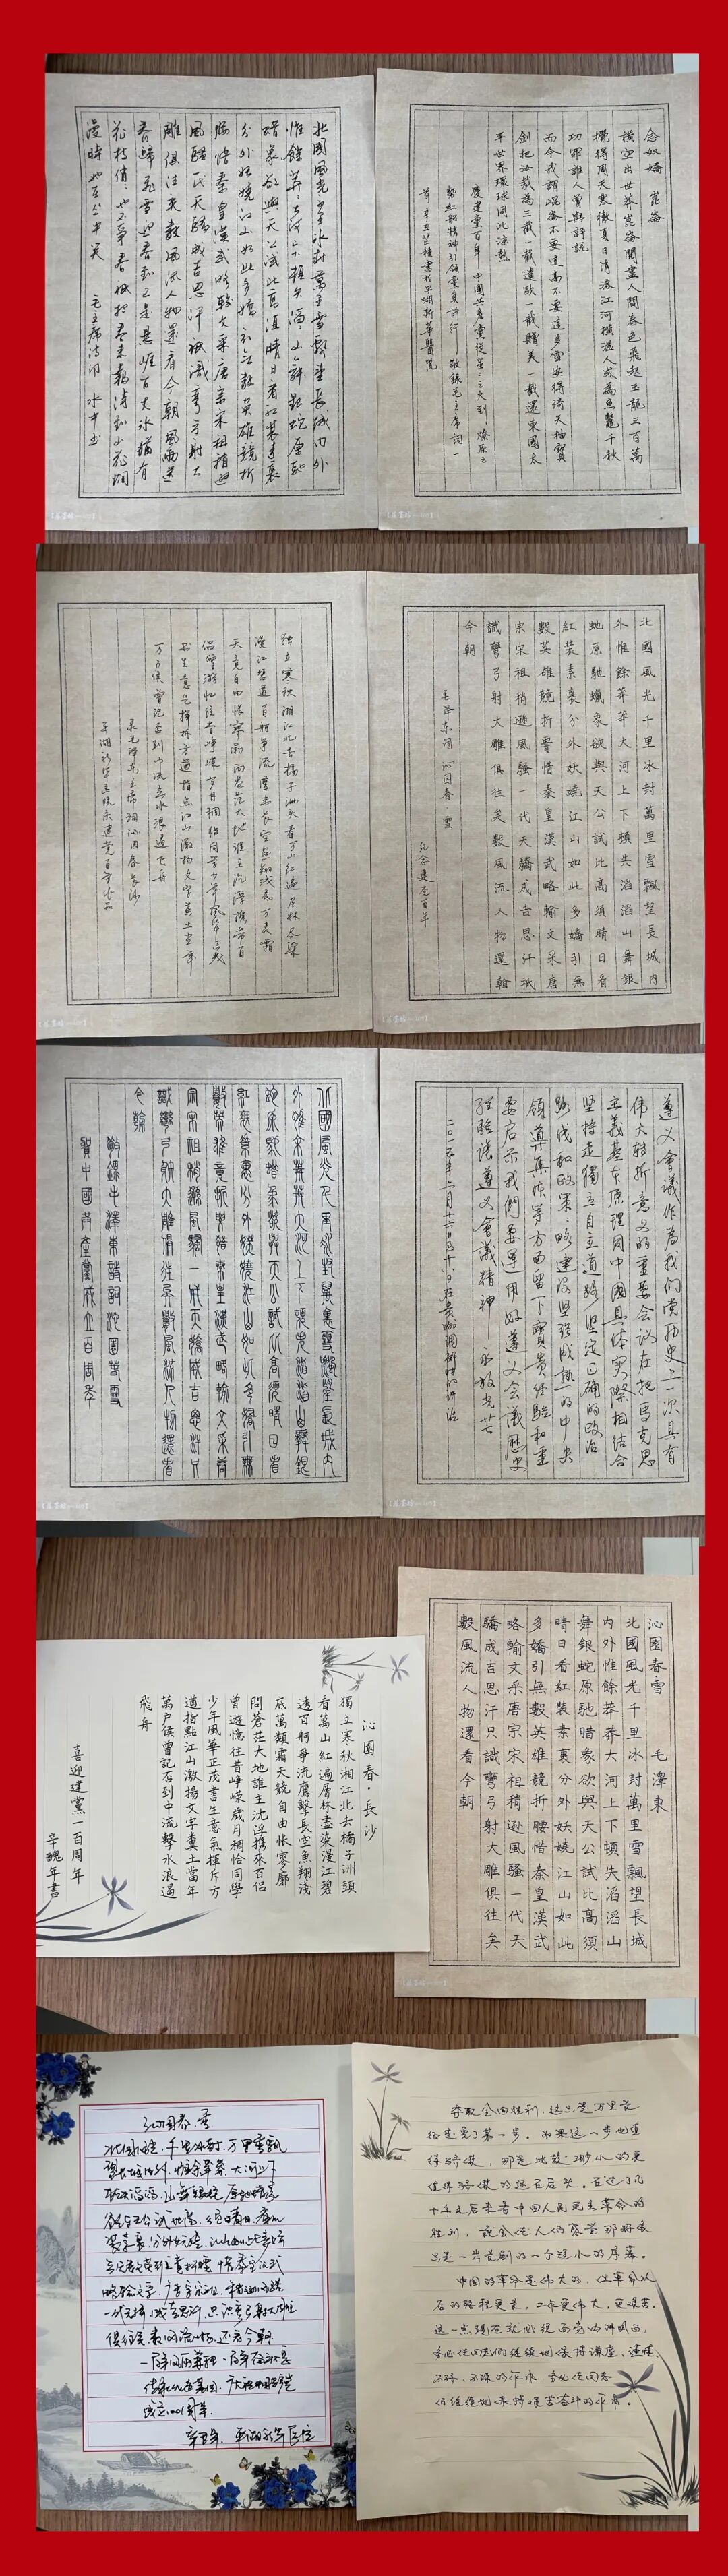 念奴嬌 崑崙
橫空出世莽崑崙閱盡人間春色飛起玉龍三百萬
攪得周天寒徹夏日消溶江河橫溢人或為魚鱉千秋
功罪誰人曾與評說
而今我謂崑崙不要這高不要這多雪安得倚天抽寶
劍把汝裁為三截一截遺歐一截贈美一截還東國太
平世界環球同此涼熱
慶建黨百年 中國共產黨從星星之火到 燎原之
勢紅船精神引領黨員前行 敬錄毛主席詞一
首辛丑芒種書於平湖新華醫院
北國風光千里冰封萬里雪飄望長城內外
惟餘莽莽大河上下頓失滔滔山舞銀蛇原馳
蠟象欲與天公試比高須晴日看紅裝素裹
分外妖嬈江山如此多嬌引無數英雄競折
腰惜秦皇漢武略輸文采唐宗宋祖稍遜
風騷一代天驕成吉思汗祇識彎弓射大
雕俱往矣數風流人物還看今朝風雨送
春歸飛雪迎春到已是懸崖百丈冰猶有
花枝俏俏也不爭春祇把春來報待到山花爛
漫時她在叢中笑 毛主席詩詞
北國風光千里冰封萬里雪飄望長城內
外惟餘莽莽大河上下頓失滔滔山舞銀
蛇原馳蠟象欲與天公試比高須晴日看
紅裝素裹分外妖嬈江山如此多嬌引無
數英雄競折腰惜秦皇漢武略輸文采唐
宗宋祖稍遜風騷一代天驕成吉思汗祇
識彎弓射大雕俱往矣數風流人物還看
今朝
毛澤东词 沁園春 雪
纪念建党百年
獨立寒秋湘江北去橘子洲头看万山红遍层林尽染
漫江碧透百舸争流鹰击长空鱼翔浅底万类霜
天竞自由怅寥廓问苍茫大地谁主沉浮携来百
侣曾游忆往昔峥嵘岁月稠恰同学少年风华正茂
书生意气挥斥方遒指点江山激扬文字粪土当年
万户侯曾记否到中流击水浪遏飞舟
录毛泽东主席词沁园春长沙
遵义會議作為我们党历史上一次具有
伟大转折意义的重要会议在把馬克思
主義基本原理同中國具体实際相結合
坚持走獨立自主道路 坚定正确的政治
路线和政策策略建设坚强成熟的中央
領導集体等方面留下寶贵经驗和重
要启示我們要運用好遵义会議歷史
经验让遵义會議精神永放光芒
二〇一五年六月十六日至十八日在贵州调研时的讲话
北國風光千里冰封萬里雪飄望長城內
外惟余莽莽大河上下頓失滔滔山舞銀
蛇原馳蠟象欲與天公試比高須晴日看
紅裝素裹分外妖嬈江山如此多嬌引無
數英雄競折腰惜秦皇漢武略輸文采唐
宗宋祖稍遜風騷一代天驕成吉思汗只
識彎弓射大雕俱往矣數風流人物還看
今朝
敬錄毛澤東詩詞沁園春雪
賀中國共產黨成立百周年
沁園春雪 毛澤東
北國風光千里冰封萬里雪飄望長城
內外惟餘莽莽大河上下頓失滔滔山
舞銀蛇原馳腊象欲與天公試比高須
晴日看紅裝素裹分外妖嬈江山如此
多嬌引無數英雄競折腰惜秦皇漢武
略輸文采唐宗宋祖稍遜風騷一代天
驕成吉思汗只識彎弓射大雕俱往矣
數風流人物還看今朝
沁園春·長沙
獨立寒秋湘江北去橘子洲頭
看萬山紅遍層林盡染漫江碧
透百舸爭流鷹擊長空魚翔淺
底萬類霜天競自由悵寥廓
問蒼茫大地誰主沈浮攜來百侶
曾遊憶往昔崢嶸歲月稠恰同學
少年風華正茂書生意氣揮斥方
遒指點江山激揚文字糞土當年
萬户侯曾記否到中流擊水浪遏
飛舟
喜迎建黨一百周年
辛醜年書
沁园春·雪
北国风光,千里冰封,万里雪飘
望长城内外,惟余莽莽,大河上下
顿失滔滔.山舞银蛇,原驰蜡象
欲与天公试比高.须晴日,看红
装素裹,分外妖娆.江山如此多娇
引无数英雄竞折腰.惜秦皇汉武
略输文采,唐宗宋祖,稍逊风骚.
一代天骄,成吉思汗,只识弯弓射大雕
俱往矣,数风流人物,还看今朝
成立100周年.
辛丑年.平湖新华医院
夺取全国胜利,这只是万里长
征走完了第一步。如果这一步也值
得骄傲,那是比较渺小的,更
值得骄傲的还在后头。在过了几
十年之后来看中国人民民主革命的
胜利,就会使人们感觉那好像
只是一出长剧的一个短小的序幕。
中国的革命是伟大的,但革命以
后的路程更长,工作更伟大,更艰苦。
这一点现在就必须向党内讲明白,
务必使同志们继续地保持谦虚、谨慎、
不骄、不躁的作风,务必使同志
们继续地保持艰苦奋斗的作风。